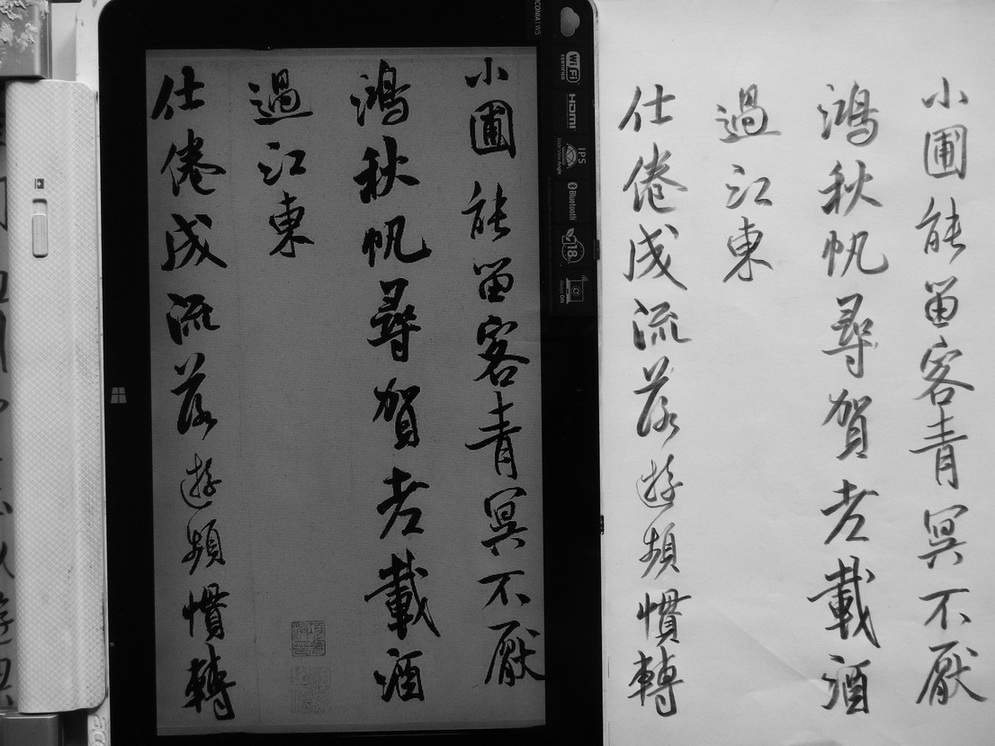 小圃能畱客青冥不厭
鴻秋帆尋賀老載酒
過江東
仕倦成流落遊頻慣轉
ICONIA W5
WiFi
CERTIFIED
HDMI
IPS
Bluetooth
18
小圃能畱客青冥不厭
鴻秋帆尋賀老載酒
過江東
仕倦成流落遊頻慣轉